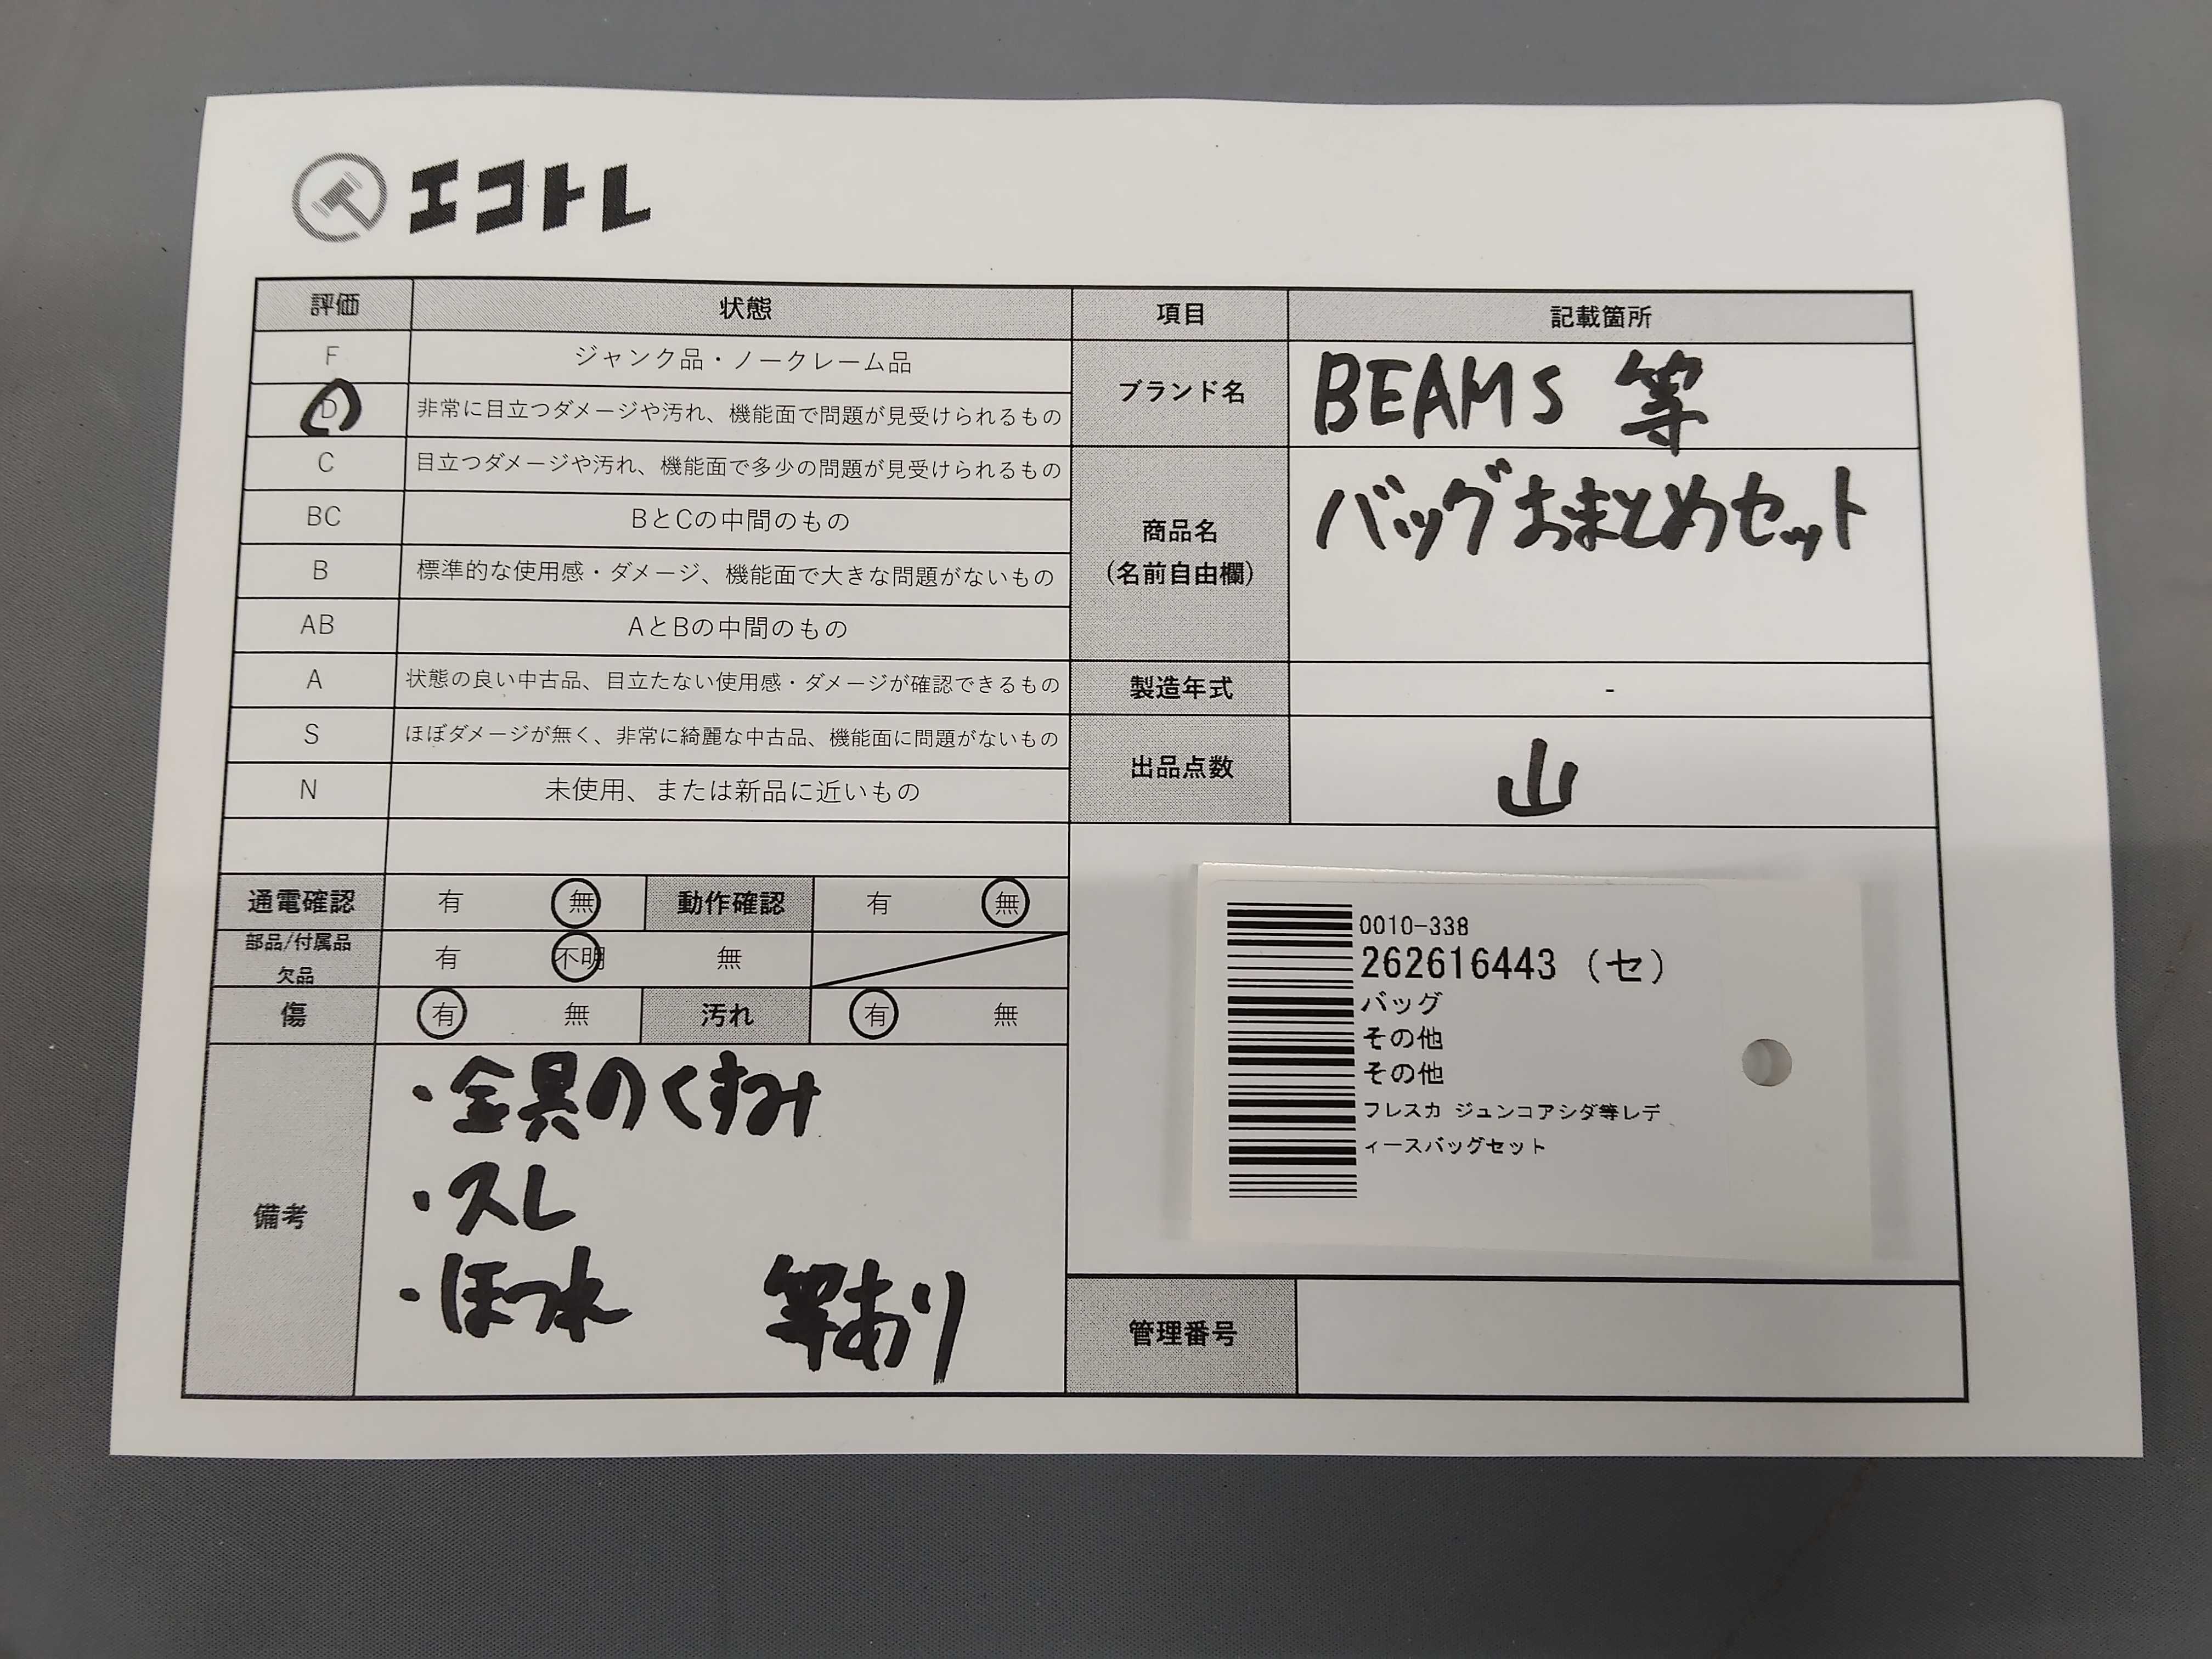 エコトレ
評価 状態 項目 記載箇所
F ジャンク品・ノークレーム品
D 非常に目立つダメージや汚れ、機能面で問題が見受けられるもの
ブランド名 BEAMS 等
C 目立つダメージや汚れ、機能面で多少の問題が見受けられるもの
BC BとCの中間のもの
商品名
(名前自由欄)
バッグおまとめセット
B 標準的な使用感・ダメージ、機能面で大きな問題がないもの
AB AとBの中間のもの
A 状態の良い中古品、目立たない使用感・ダメージが確認できるもの
製造年式 -
S ほぼダメージが無く、非常に綺麗な中古品、機能面に問題がないもの
出品点数 山
N 未使用、または新品に近いもの
通電確認 有 無 動作確認 有 無
部品/付属品
欠品
有 不明 無
傷 有 無 汚れ 有 無
備考
・金具のくすみ
・スレ
・ほつれ 等あり
0010-338
262616443 (セ)
バッグ
その他
その他
フレスカ ジュンコアシダ等レデ
ィースバッグセット
管理番号